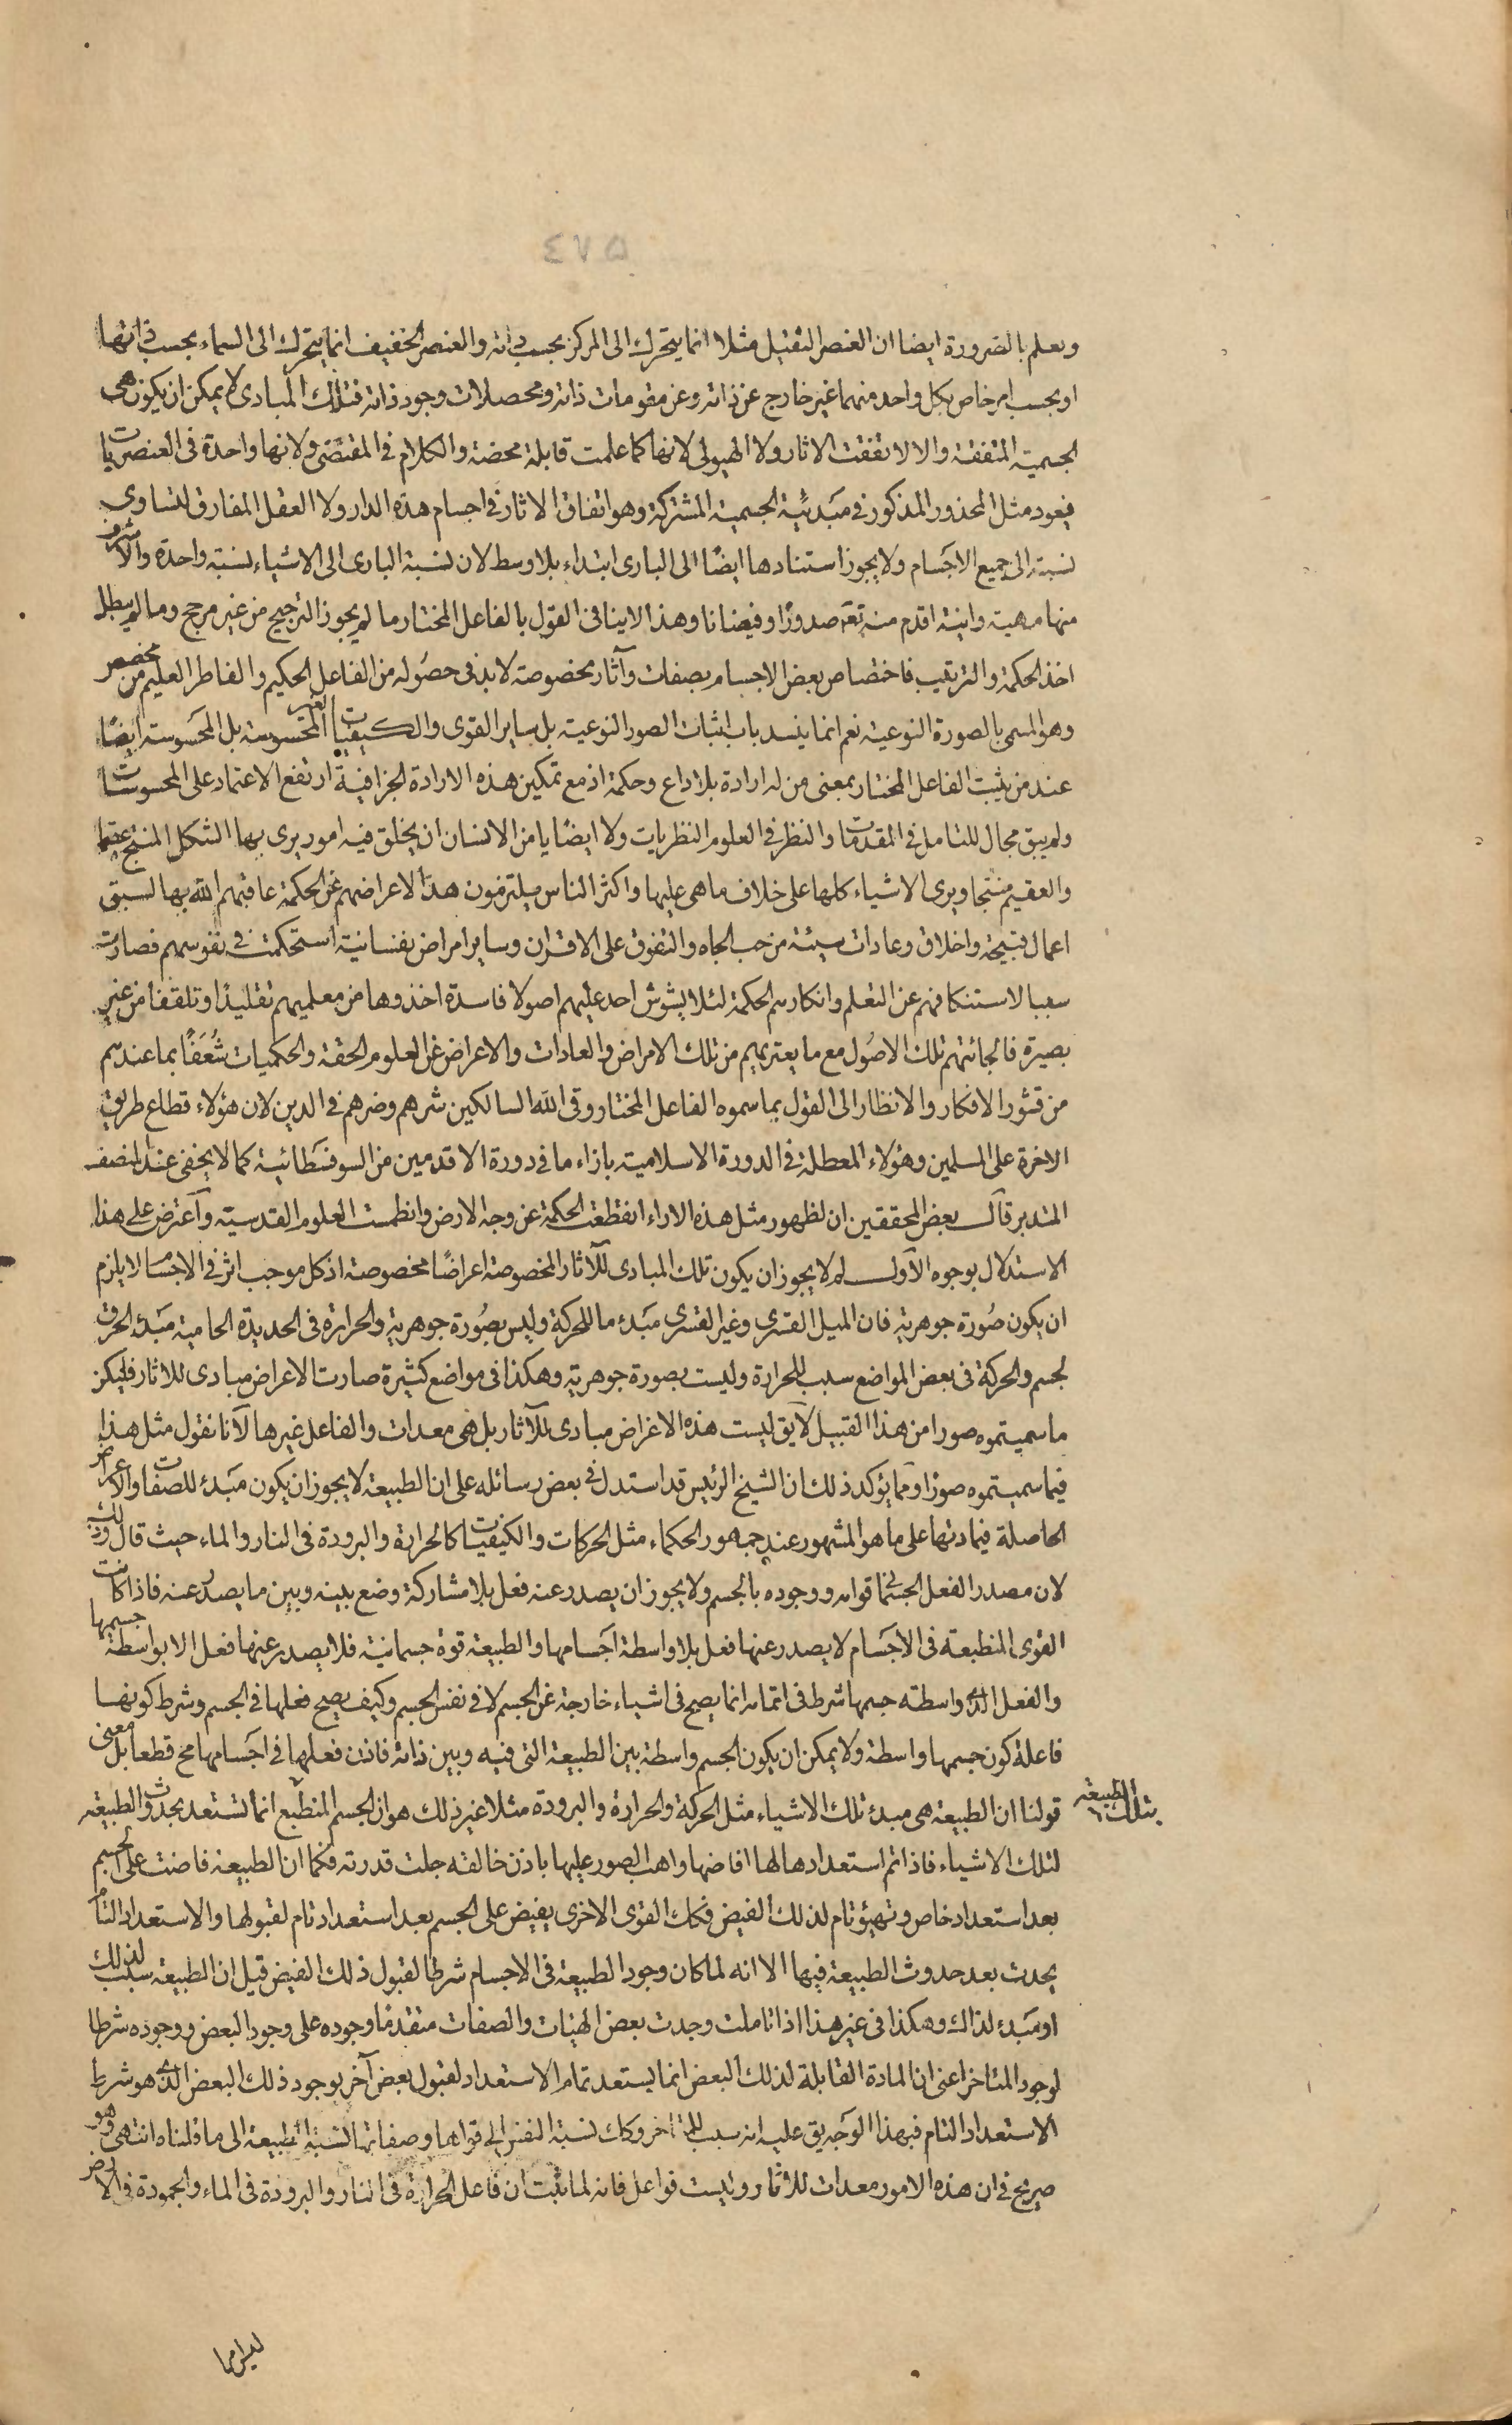 ٤٧٥
ويعلم بالضرورة ايضا ان العنصر الثقيل مثلا انما يتحرك الى المركز بحسب ذاته والعنصر الخفيف انما يتحرك الى السماء بحسب ذاتها
او بحسب امر خاص بكل واحد منهما غير خارج عن ذاته وعن مقومات ذاته ومحصلات وجود ذاته فتلك المبادى لا يمكن ان يكون هى
الجسمية المتفقة والا لاتفقت الاثار ولا الهيولى لانها كما علمت قابلة محضة والكلام فى المقتضى ولانها واحدة فى العنصريات
فيعود مثل المحذور المذكور فى مبدئية الجسمية المشتركة وهو اتفاق الاثار فى اجسام هذه الدار ولا العقل المفارق لتساوى
نسبته الى جميع الاجسام ولا يجوز استنادها ايضا الى البارى ابتداء بلا وسط لان نسبة البارى الى الاشياء نسبة واحدة والاشرف
منها مهية وانية اقدم منه تعه صدورا وفيضانا وهذا لا ينافى القول بالفاعل المختار ما لم يجوز الترجيح من غير مرجح وما لم يبطل
اخذ الحكمة والترتيب فاختصاص بعض الاجسام بصفات وآثار مخصوصة لا بد فى حصوله من الفاعل الحكيم والفاطر العليم من مخصص
وهو المسمى بالصورة النوعية نعم انما ينسد باب اثبات الصور النوعية بل ساير القوى والكيفيات الغير المحسوسة بل المحسوسة ايضا
عند من يثبت الفاعل المختار بمعنى من له ارادة بلا داع وحكمة اذ مع تمكين هذه الارادة الجزافية ارتفع الاعتماد على المحسوسات
ولم يبق مجال للتامل فى المقدمات والنظر فى العلوم النظريات ولا ايضا يامن الانسان ان يخلق فيه امور يرى بها الشكل المنتج عقيما
والعقيم منتجا ويرى الاشياء كلها على خلاف ما هى عليها واكثر الناس يلتزمون هذا لاعراضهم عن الحكمة عاقبهم الله بها لسبق
اعمال قبيحة واخلاق وعادات سيئة من حب الجاه والتفوق على الاقران وساير امراض نفسانية استحكمت فى نفوسهم فصارت
سببا لاستنكافهم عن التعلم وانكارهم الحكمة لئلا يشوش احد عليهم اصولا فاسدة اخذوها من معلميهم تقليدا وتلقفا من غير
بصيرة فالجائتهم تلك الاصول مع ما يعتريهم من تلك الامراض والعادات والاعراض عن العلوم الحقة والحكميات شعفا بما عندهم
من قشور الافكار والانظار الى القول بما سموه الفاعل المختار وقى الله السالكين شرهم وضرهم فى الدين لان هؤلاء قطاع طريق
الاخرة على المسلمين وهؤلاء المعطلة فى الدورة الاسلامية بازاء ما فى دورة الاقدمين من السوفسطائية كما لا يخفى عند المنصف
المتدبر قال بعض المحققين ان لظهور مثل هذه الاراء انقطعت الحكمة عن وجه الارض وانطمست العلوم القدسية واعترض على هذا
الاستدلال بوجوه الاول لم لا يجوز ان يكون تلك المبادى للآثار المخصوصة اعراضا مخصوصة اذ كل موجب اثر فى الاجسام لا يلزم
ان يكون صورة جوهرية فان الميل القسرى وغير القسرى مبدء ما للحركة وليس بصورة جوهرية والحرارة فى الحديدة الحامية مبدء الحرق
لجسم والحركة فى بعض المواضع سبب للحرارة وليست بصورة جوهرية وهكذا فى مواضع كثيرة صارت الاعراض مبادى للاثار فليكن
ما سميتموه صورا من هذا القبيل لا يق ليست هذه الاعراض مبادى للآثار بل هى معدات والفاعل غيرها لانا نقول مثل هذا
فيما سميتموه صورا ومما يؤكد ذلك ان الشيخ الرئيس قد استدل فى بعض رسائله على ان الطبيعة لا يجوز ان يكون مبدء للصفات والاعراض
الحاصلة فى مادتها على ما هو المشهور عند جمهور الحكماء مثل الحركات والكيفيات كالحرارة والبرودة فى النار والماء حيث قال وذلك
لان مصدر الفعل الجسمانى قوامه ووجوده بالجسم ولا يجوز ان يصدر عنه فعل بلا مشاركة وضع بينه وبين ما يصدر عنه فاذا كانت
القوى المنطبعة فى الاجسام لا يصدر عنها فعل بلا واسطة اجسامها والطبيعة قوة جسمانية فلا يصدر عنها فعل الا بواسطة جسمها
والفعل الذى واسطته جسمها شرط فى اتمامه انما يصح فى اشياء خارجة عن الجسم لا فى نفس الجسم وكيف يصح فعلها فى الجسم وشرط كونها
فاعلة كون جسمها واسطة ولا يمكن ان يكون الجسم واسطة بين الطبيعة التى فيه وبين ذاته فاذن فعلها فى اجسامها مح قطعا بل معنى
قولنا ان الطبيعة هى مبدء تلك الاشياء مثل الحركة والحرارة والبرودة مثلا غير ذلك هو ان الجسم المنطبع انما تستعد بحدوث الطبيعة
بتلك الطبيعة
لتلك الاشياء فاذا تم استعدادها لها افاضها واهب الصور عليها باذن خالقه جلت قدرته فكما ان الطبيعة فاضت على الجسم
بعد استعداد خاص وتهيؤ تام لذلك الفيض فكك القوى الاخرى يفيض على الجسم بعد استعداد تام لقبولها والاستعداد التام
يحدث بعد حدوث الطبيعة فيها الا انه لما كان وجود الطبيعة فى الاجسام شرطا لقبول ذلك الفيض قيل ان الطبيعة سبب لذلك
او مبدء لذاك وهكذا فى غير هذا اذا تاملت وجدت بعض الهيات والصفات متقدما وجوده على وجود البعض ووجوده شرطا
لوجود المتاخر اعنى ان المادة القابلة لذلك البعض انما يستعد تمام الاستعداد لقبول بعض آخر بوجود ذلك البعض الذى هو شرط
الاستعداد التام فبهذا الوجه يق عليه انه سبب للمتاخر وكك نسبة النفس الى قواها وصفاتها كنسبة الطبيعة الى ما قلناه انتهى وهو
صريح فى ان هذه الامور معدات للاثار وليست فواعل فانه لما ثبت ان فاعل الحرارة فى النار والبرودة فى الماء والجمودة فى الارض
ليس امرا